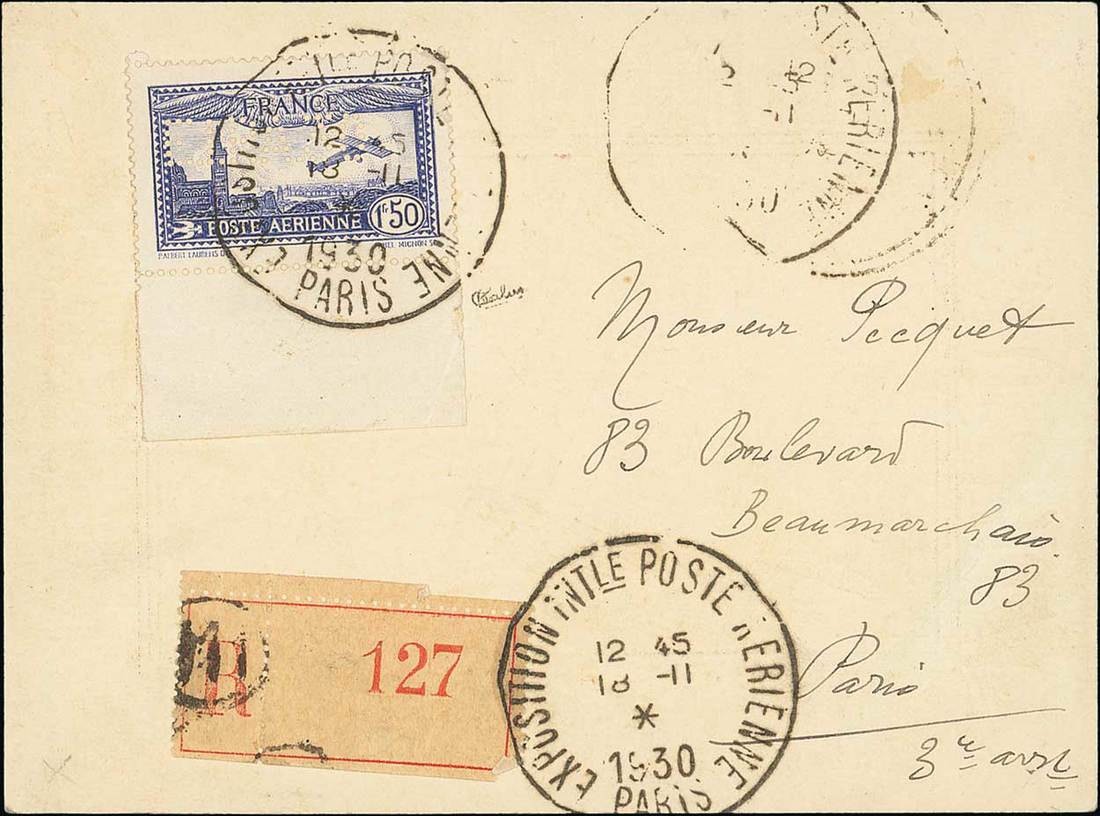 FRANCE
POSTE AÉRIENNE
1F50
P. ALBERT LAURENS D
EL MIGNON S
NTLE POSTE
12 45
18 -11
*
1930
PARIS
STE AERIENNE
Monsieur Pecquet
83 Boulevard
Beaumarchais.
83
Paris
3e arrt
R 127
EXPOSITION INTLE POSTE AERIENNE
12 45
18 -11
*
1930
PARIS